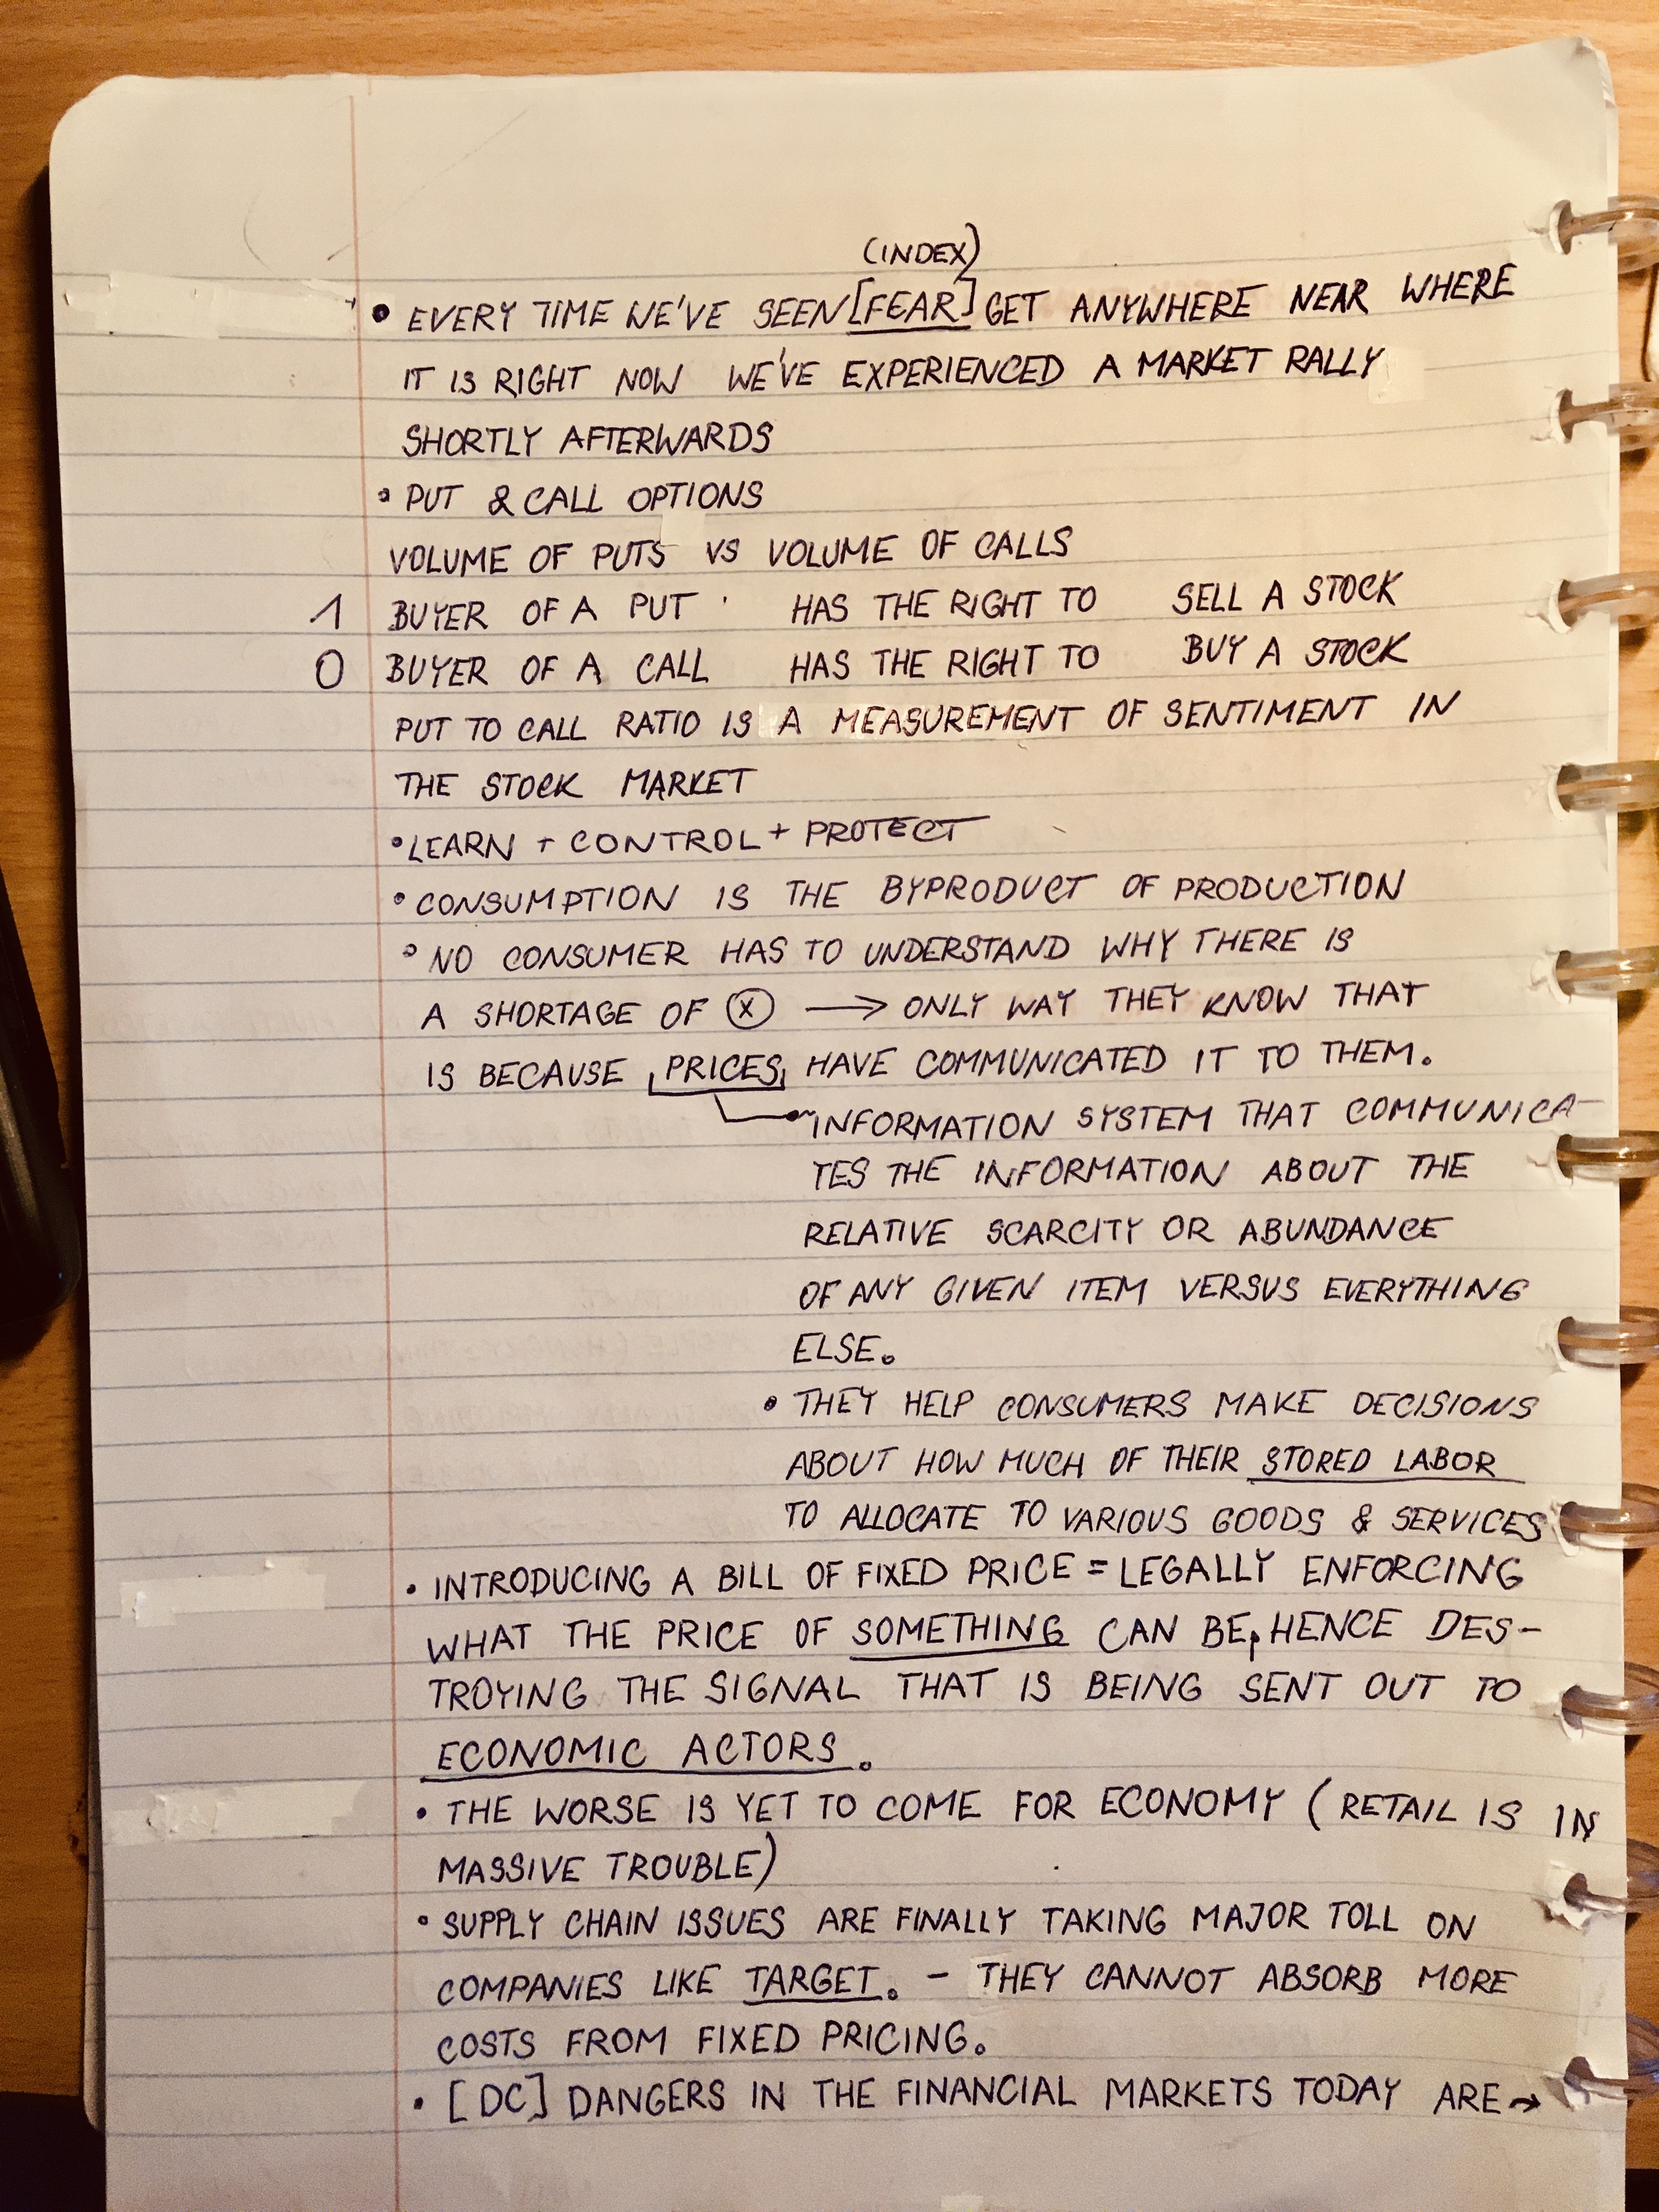 (INDEX)
• EVERY TIME WE'VE SEEN [FEAR] GET ANYWHERE NEAR WHERE
IT IS RIGHT NOW WE'VE EXPERIENCED A MARKET RALLY
SHORTLY AFTERWARDS
• PUT & CALL OPTIONS
VOLUME OF PUTS VS VOLUME OF CALLS
1 BUYER OF A PUT HAS THE RIGHT TO SELL A STOCK
0 BUYER OF A CALL HAS THE RIGHT TO BUY A STOCK
PUT TO CALL RATIO IS A MEASUREMENT OF SENTIMENT IN
THE STOCK MARKET
• LEARN + CONTROL + PROTECT
• CONSUMPTION IS THE BYPRODUCT OF PRODUCTION
• NO CONSUMER HAS TO UNDERSTAND WHY THERE IS
A SHORTAGE OF Ⓧ → ONLY WAY THEY KNOW THAT
IS BECAUSE PRICES HAVE COMMUNICATED IT TO THEM.
INFORMATION SYSTEM THAT COMMUNICA-
TES THE INFORMATION ABOUT THE
RELATIVE SCARCITY OR ABUNDANCE
OF ANY GIVEN ITEM VERSUS EVERYTHING
ELSE.
• THEY HELP CONSUMERS MAKE DECISIONS
ABOUT HOW MUCH OF THEIR STORED LABOR
TO ALLOCATE TO VARIOUS GOODS & SERVICES
• INTRODUCING A BILL OF FIXED PRICE = LEGALLY ENFORCING
WHAT THE PRICE OF SOMETHING CAN BE, HENCE DES-
TROYING THE SIGNAL THAT IS BEING SENT OUT TO
ECONOMIC ACTORS.
• THE WORSE IS YET TO COME FOR ECONOMY (RETAIL IS IN
MASSIVE TROUBLE)
• SUPPLY CHAIN ISSUES ARE FINALLY TAKING MAJOR TOLL ON
COMPANIES LIKE TARGET. - THEY CANNOT ABSORB MORE
COSTS FROM FIXED PRICING.
• [DC] DANGERS IN THE FINANCIAL MARKETS TODAY ARE →